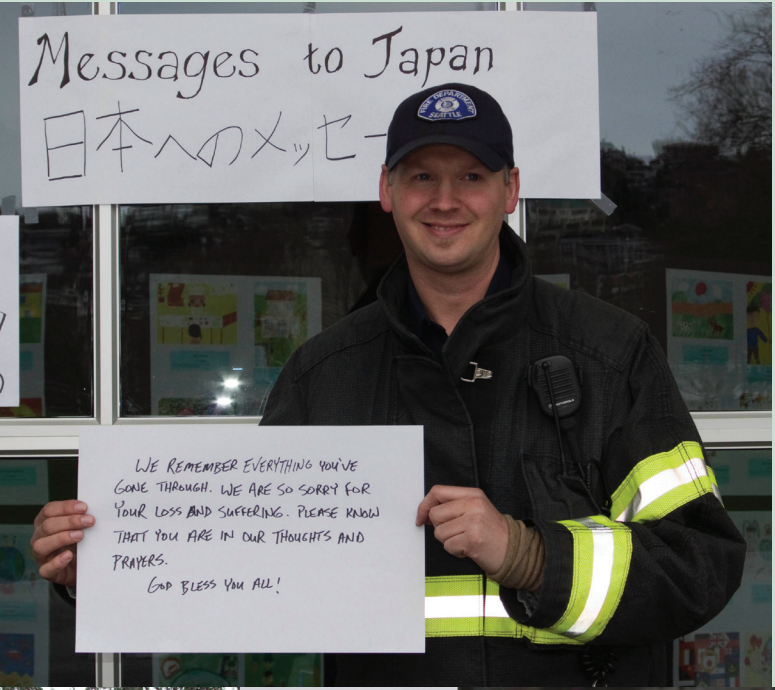 Messages to Japan
日本へのメッセー
FIRE DEPARTMENT
SEATTLE
WE REMEMBER EVERYTHING YOU'VE
GONE THROUGH. WE ARE SO SORRY FOR
YOUR LOSS AND SUFFERING. PLEASE KNOW
THAT YOU ARE IN OUR THOUGHTS AND
PRAYERS.
GOD BLESS YOU ALL!